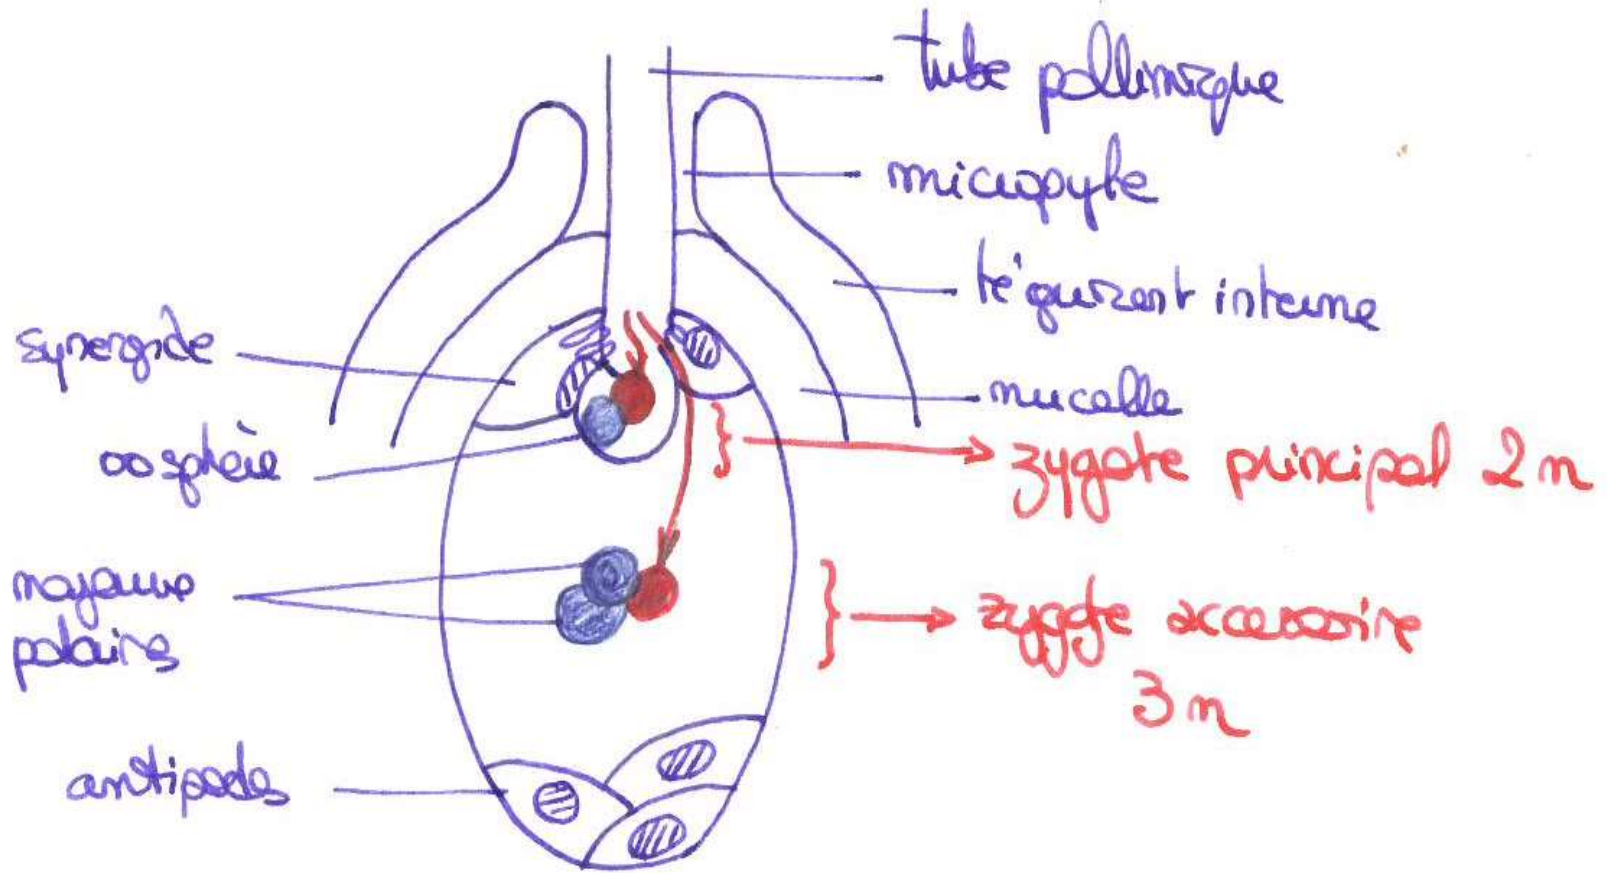 tube pollinique
micropyle
tégument interne
synergide
nucelle
oosphère
zygote principal 2n
noyaux
polaires
zygote accessoire
3n
antipodes